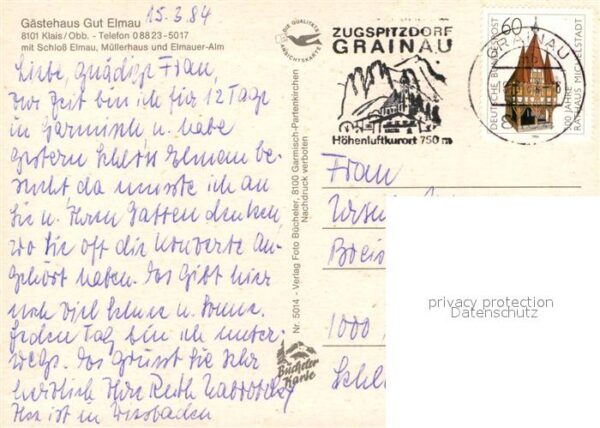 Gästehaus Gut Elmau
8101 Klais/Obb. - Telefon 08823-5017
mit Schloß Elmau, Müllerhaus und Elmauer-Alm
15.3.84
Liebe, gnädige Frau,
zur Zeit bin ich für 12 Tage
in Garmisch u. habe
gestern Schloß Elmau be-
sucht da musste ich an
Sie u. Ihren Gatten denken
wo Sie oft die Konzerte an-
gehört haben. Es gibt hier
noch viel Schnee u. Sonne.
Jeden Tag bin ich unter-
wegs. Es grüsst Sie sehr
herzlich Ihre Ruth
ist in Wiesbaden
DIE QUALITÄTS
ANSICHTSKARTE
Nr. 5014 - Verlag Foto Bücheler, 8100 Garmisch-Partenkirchen
Nachdruck verboten
Bücheler
Karte
ZUGSPITZDORF
GRAINAU
Höhenluftkurort 750 m
60
DEUTSCHE BUNDESPOST
500 JAHRE
RATHAUS MICHELSTADT
GRAINAU
8
Frau
1000
privacy protection
Datenschutz